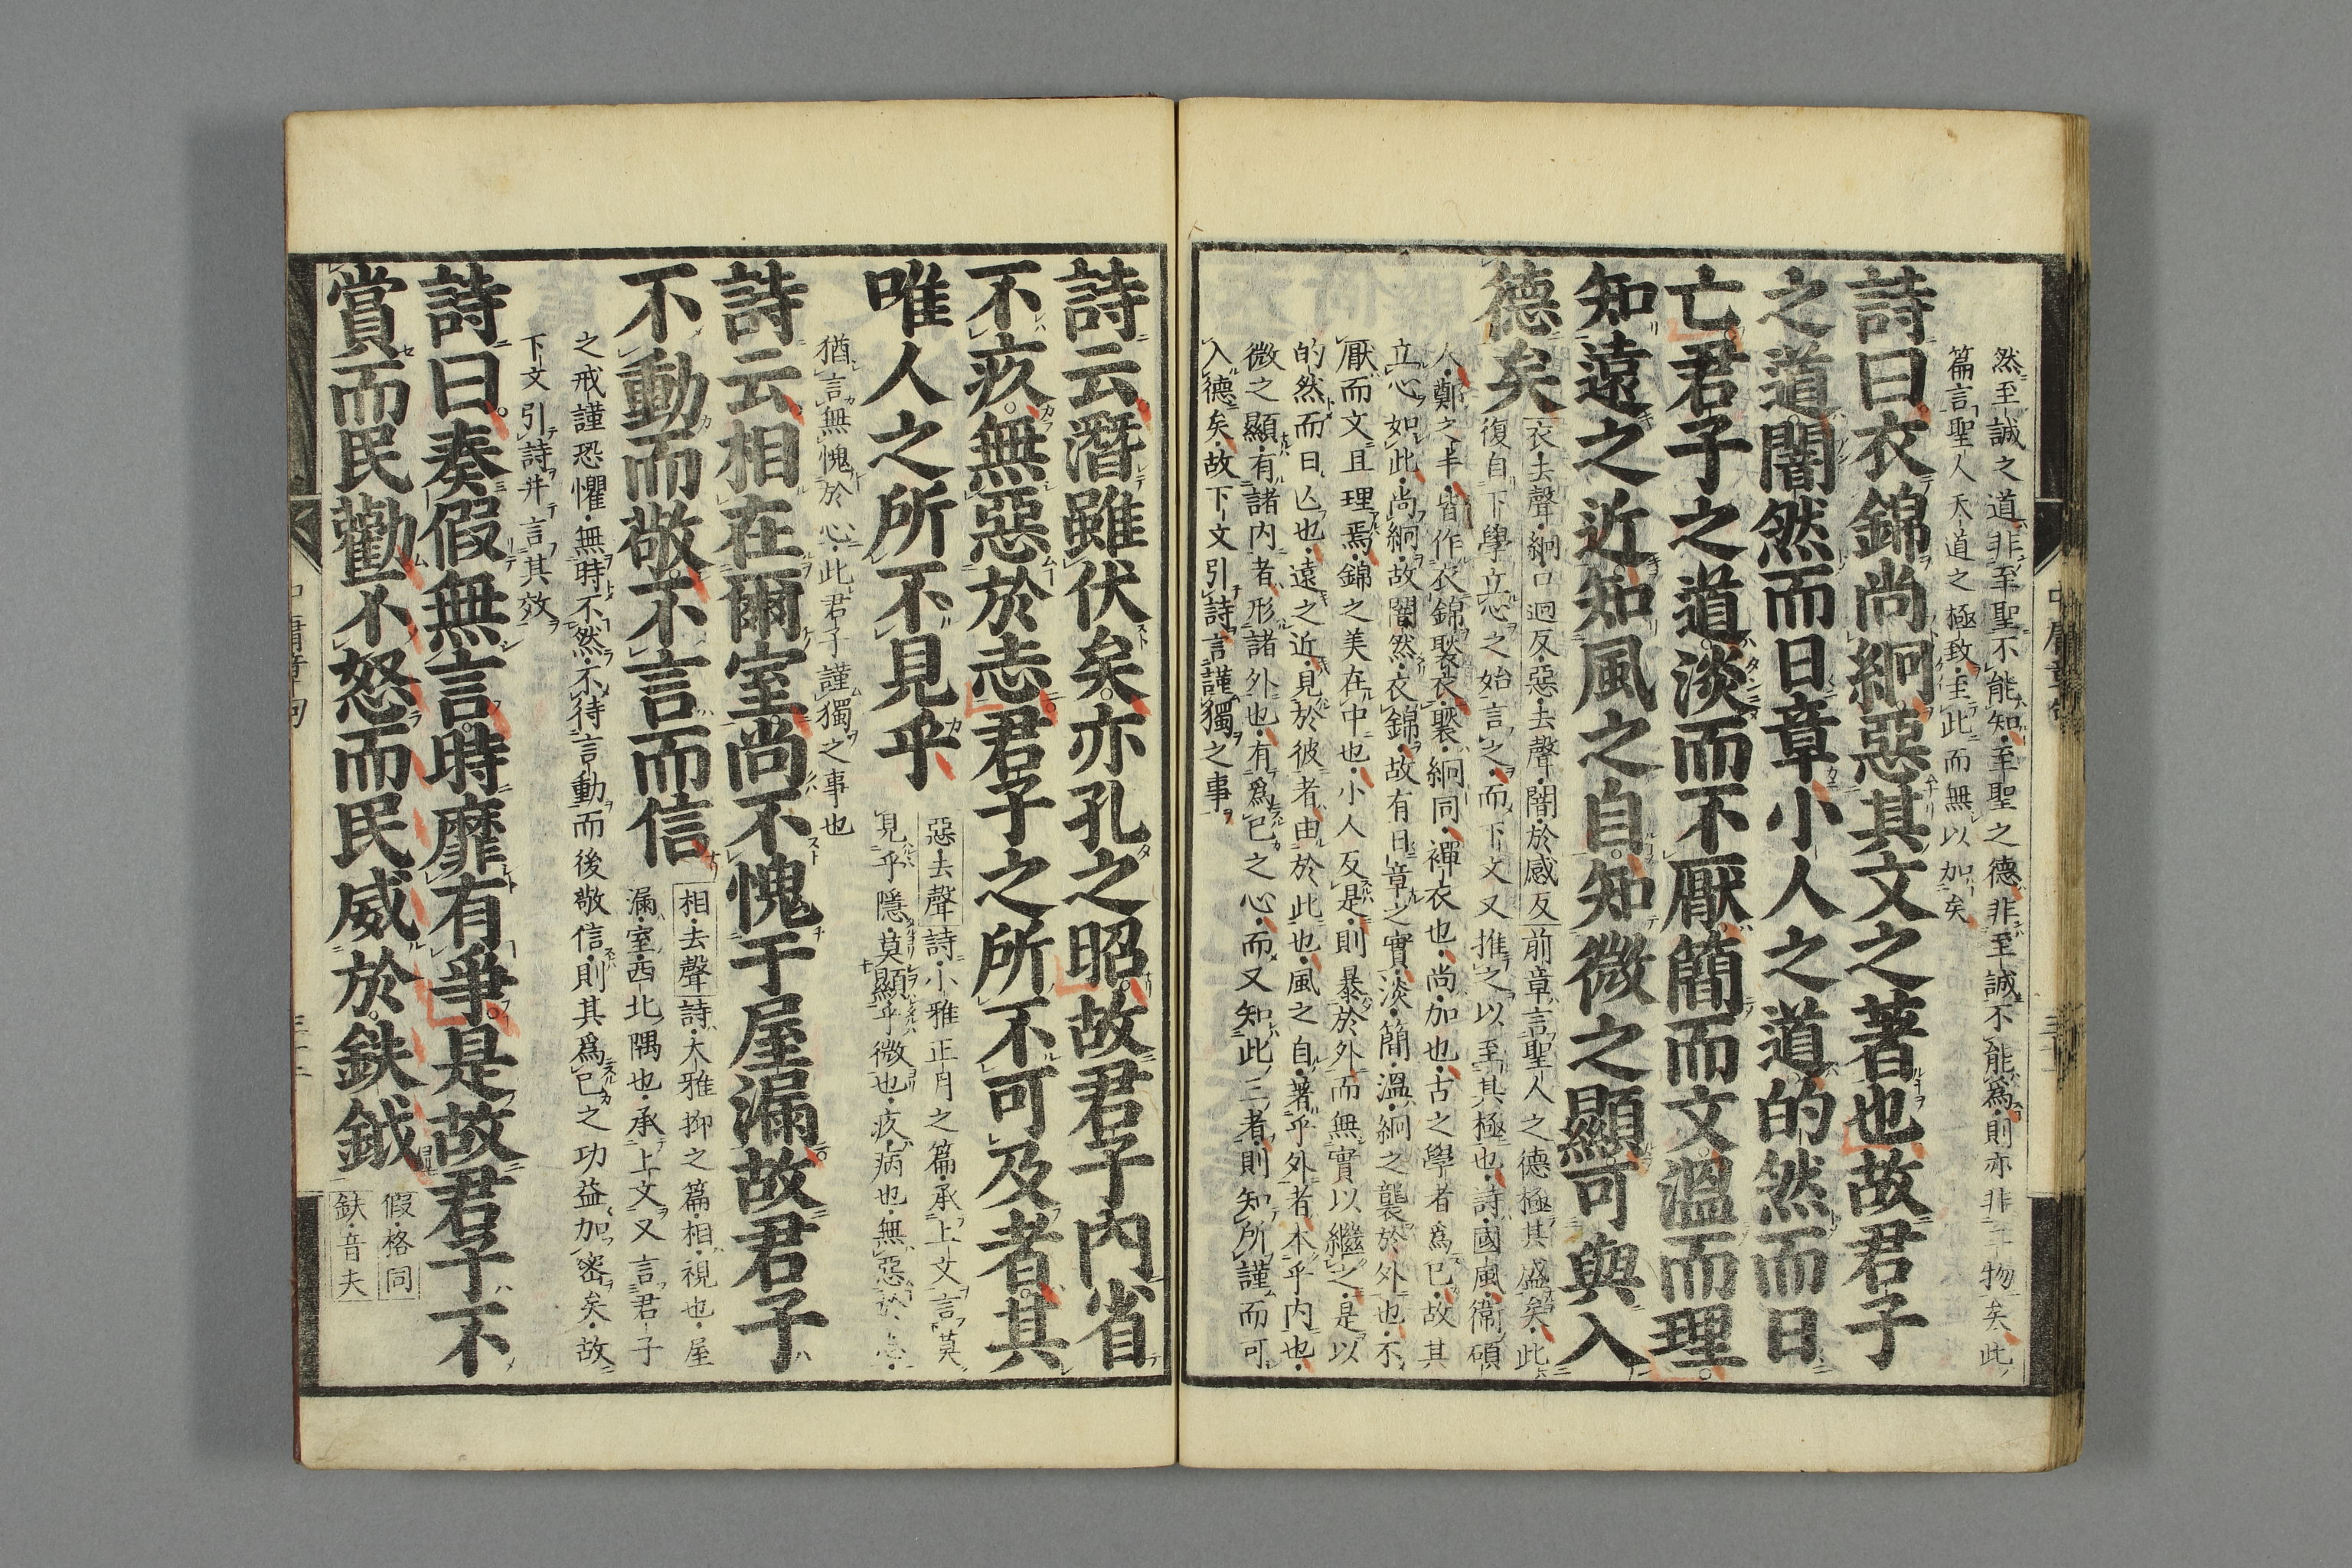 然至誠之道非至聖不能知至聖之德非至誠不能爲則亦非二物矣此
篇言聖人天道之極致至此而無以加矣
詩曰衣錦尚絅惡其文之著也故君子
之道闇然而日章小人之道的然而日
亡君子之道淡而不厭簡而文溫而理
知遠之近知風之自知微之顯可與入
德矣
衣去聲絅口迥反惡去聲闇於感反前章言聖人之德極其盛矣此
復自下學立心之始言之而下文又推之以至其極也詩國風衞碩
人鄭之丰皆作衣錦褧衣褧絅同襌衣也尚加也古之學者爲己故其
立心如此尚絅故闇然衣錦故有日章之實淡簡溫絅之襲於外也不
厭而文且理焉錦之美在中也小人反是則暴於外而無實以繼之是以
的然而日亾也遠之近見於彼者由於此也風之自著乎外者本乎内也
微之顯有諸内者形諸外也有爲己之心而又知此三者則知所謹而可
入德矣故下文引詩言謹獨之事
中庸章句
詩云潛雖伏矣亦孔之昭故君子內省
不疚無惡於志君子之所不可及者其
唯人之所不見乎
惡去聲詩小雅正月之篇承上文言莫
見乎隱莫顯乎微也疚病也無惡於志
猶言無愧於心此君子謹獨之事也
詩云相在爾室尚不愧于屋漏故君子
不動而敬不言而信
相去聲詩大雅抑之篇相視也屋
漏室西北隅也承上文又言君子
之戒謹恐懼無時不然不待言動而後敬信則其爲己之功益加密矣故
下文引詩幷言其效
詩曰奏假無言時靡有爭是故君子不
賞而民勸不怒而民威於鈇鉞
假格同
鈇音夫
中庸章句
三十二